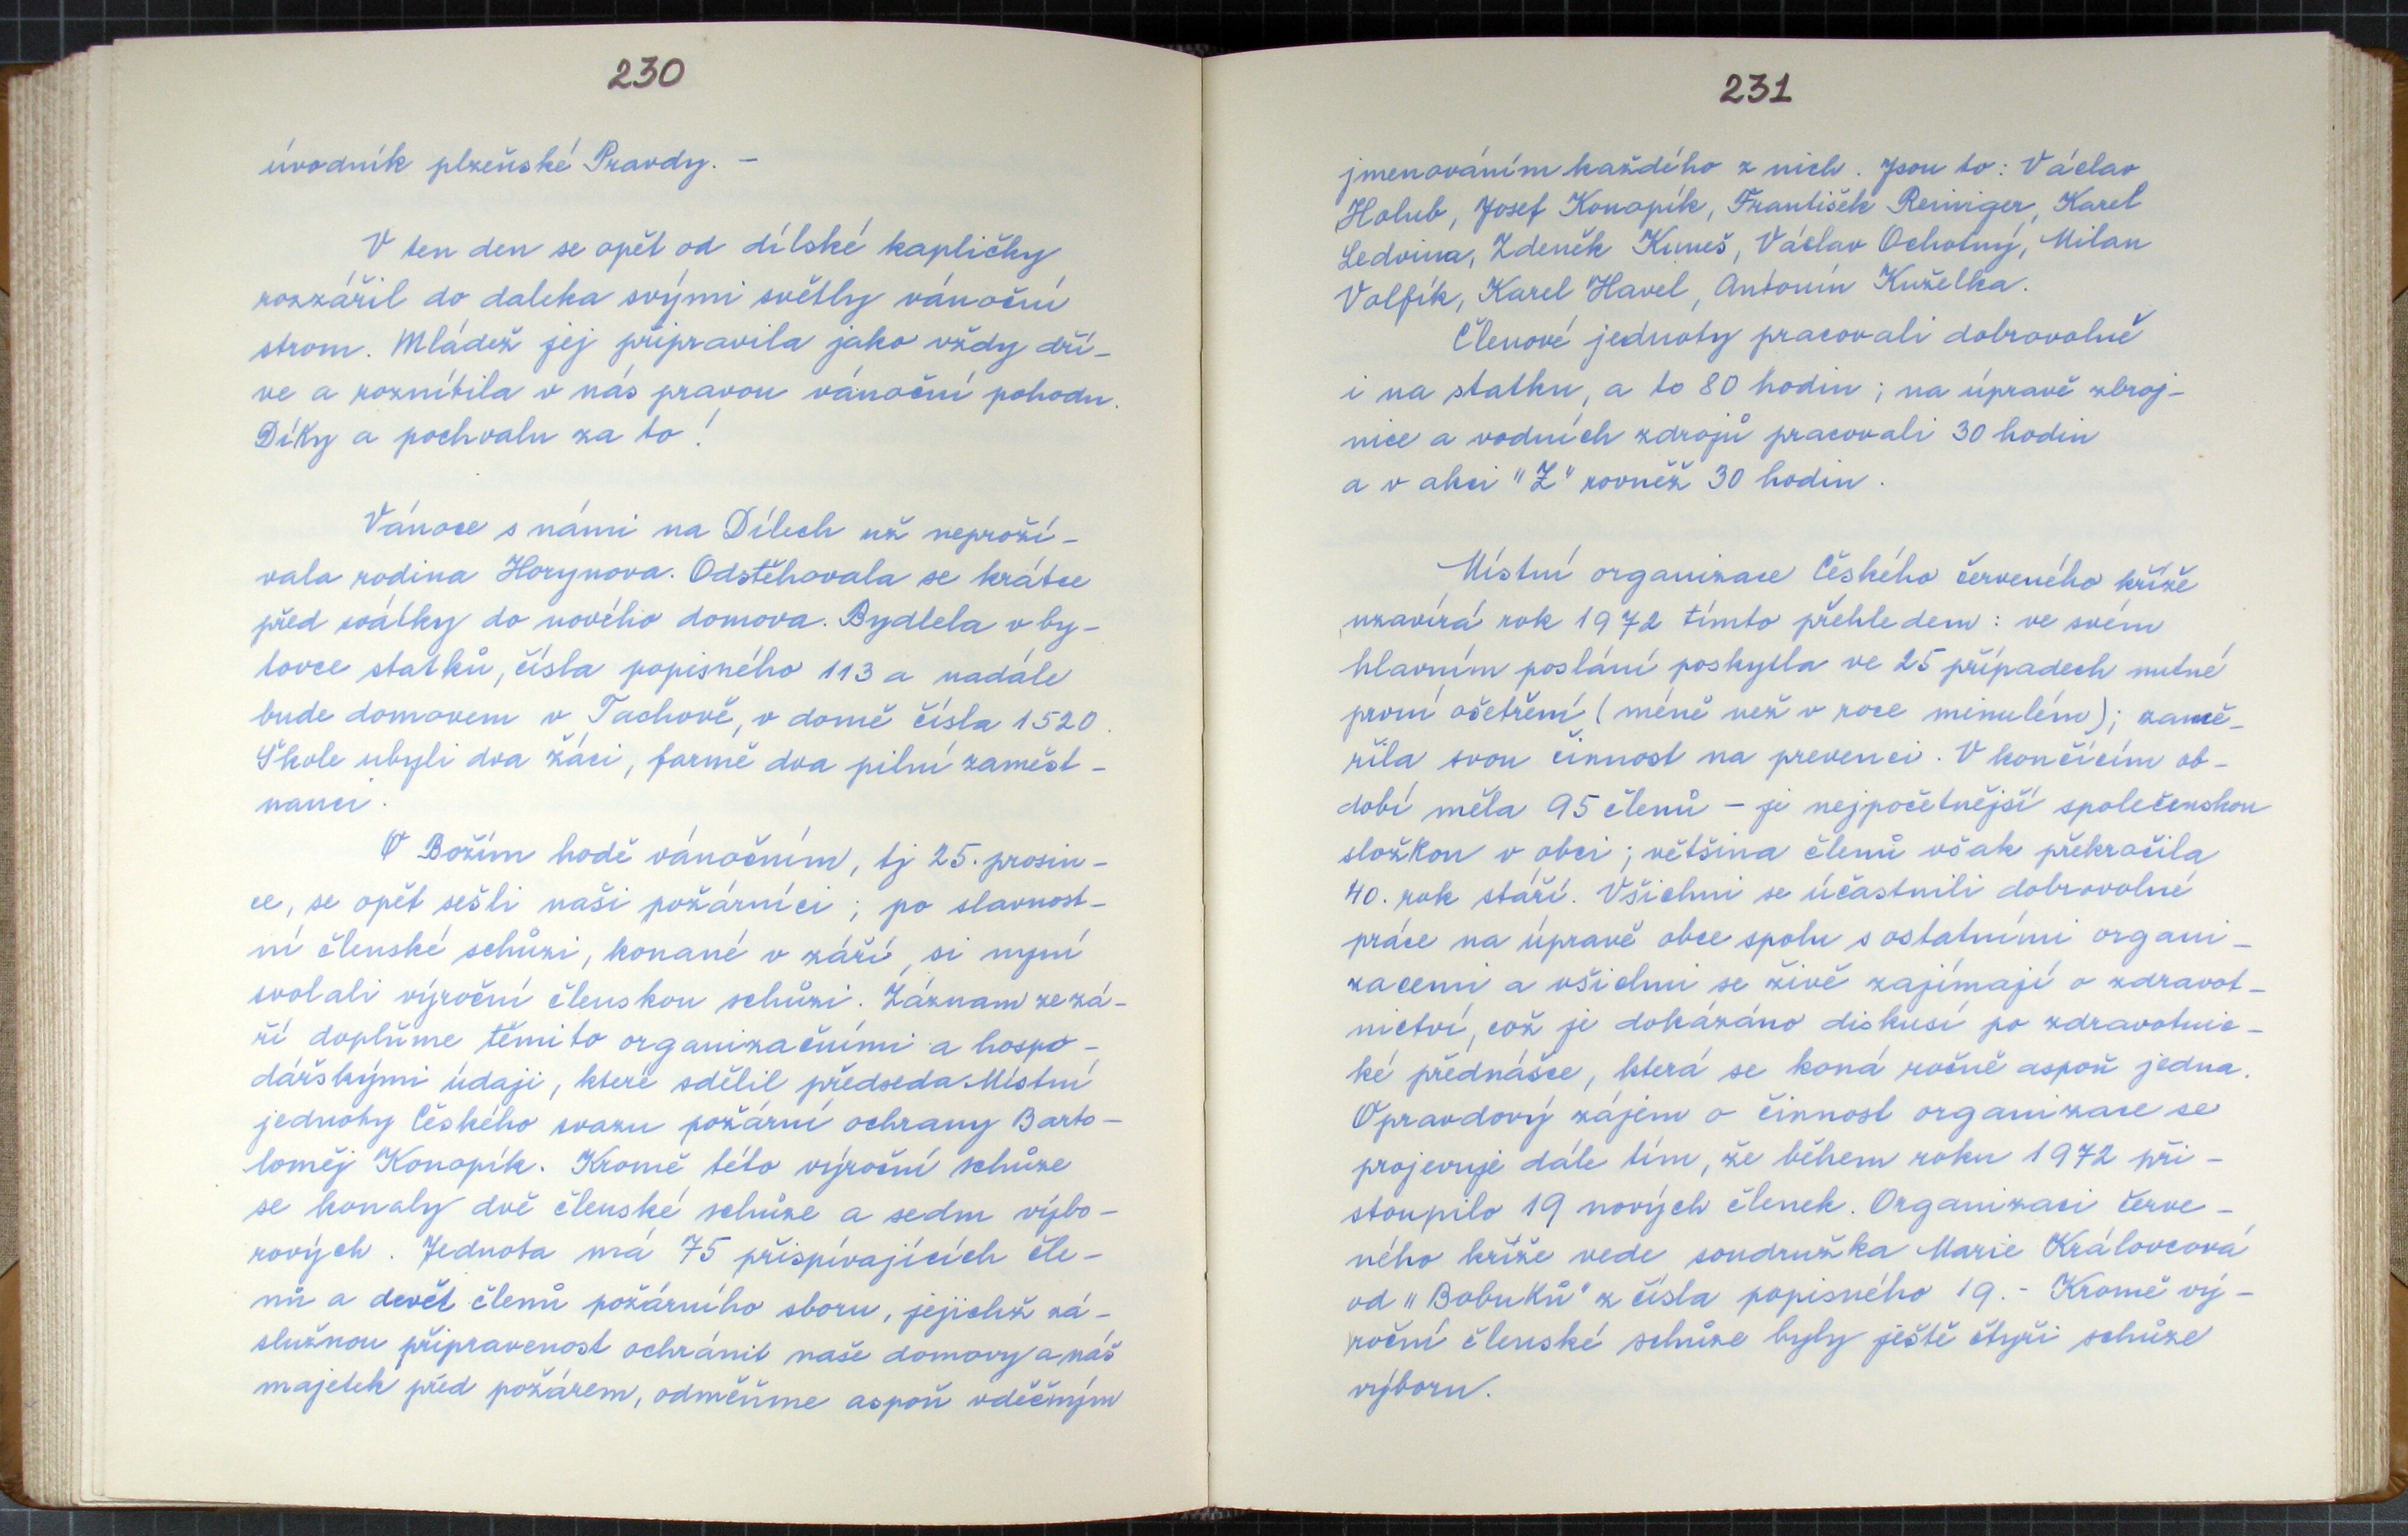 230
úvodník plzeňské Pravdy. -
V ten den se opět od dílské kapličky
rozzářil do daleka svými světly vánoční
strom. Mládež jej připravila jako vždy dří-
ve a roznítila v nás pravou vánoční pohodu.
Díky a pochvalu za to!
Vánoce s námi na Dílech už neproží-
vala rodina Horynova. Odstěhovala se krátce
před svátky do nového domova. Bydlela v by-
tovce statků, čísla popisného 113 a nadále
bude domovem v Tachově, v domě čísla 1520.
Škole ubyli dva žáci, farmě dva pilní zaměst-
nanci.
O Božím hodě vánočním, tj 25. prosin-
ce, se opět sešli naši požárníci; po slavnost-
ní členské schůzi, konané v září, si nyní
svolali výroční členskou schůzi. Záznam ze zá-
ří doplňme těmito organizačními a hospo-
dářskými údaji, které sdělil předseda Místní
jednoty Českého svazu požární ochrany Barto-
loměj Konopík. Kromě této výroční schůze
se konaly dvě členské schůze a sedm výbo-
rových. Jednota má 75 přispívajících čle-
nů a devět členů požárního sboru, jejichž zá-
služnou připravenost ochránit naše domovy a náš
majetek před požárem, odměňme aspoň vděčným
231
jmenováním každého z nich. Jsou to: Václav
Holub, Josef Konopík, František Reiniger, Karel
Ledvina, Zdeněk Kuneš, Václav Ochotný, Milan
Volfík, Karel Havel, Antonín Kuželka.
Členové jednoty pracovali dobrovolně
i na statku, a to 80 hodin; na úpravě zbroj-
nice a vodních zdrojů pracovali 30 hodin
a v akci "Z" rovněž 30 hodin.
Místní organizace Českého červeného kříže
uzavírá rok 1972 tímto přehledem: ve svém
hlavním poslání poskytla ve 25 případech nutné
první ošetření (méně než v roce minulém); zamě-
řila svou činnost na prevenci. V končícím ob-
dobí měla 95 členů - je nejpočetnější společenskou
složkou v obci; většina členů však překročila
40. rok stáří. Všichni se účastnili dobrovolné
práce na úpravě obce spolu s ostatními organi-
zacemi a všichni se živě zajímají o zdravot-
nictví, což je dokázáno diskusí po zdravotnic-
ké přednášce, která se koná ročně aspoň jedna.
Opravdový zájem o činnost organizace se
projevuje dále tím, že během roku 1972 při-
stoupilo 19 nových členek. Organizaci červe-
ného kříže vede soudružka Marie Královcová
od "Bobuků" z čísla popisného 19. - Kromě vý-
roční členské schůze byly ještě čtyři schůze
výboru.